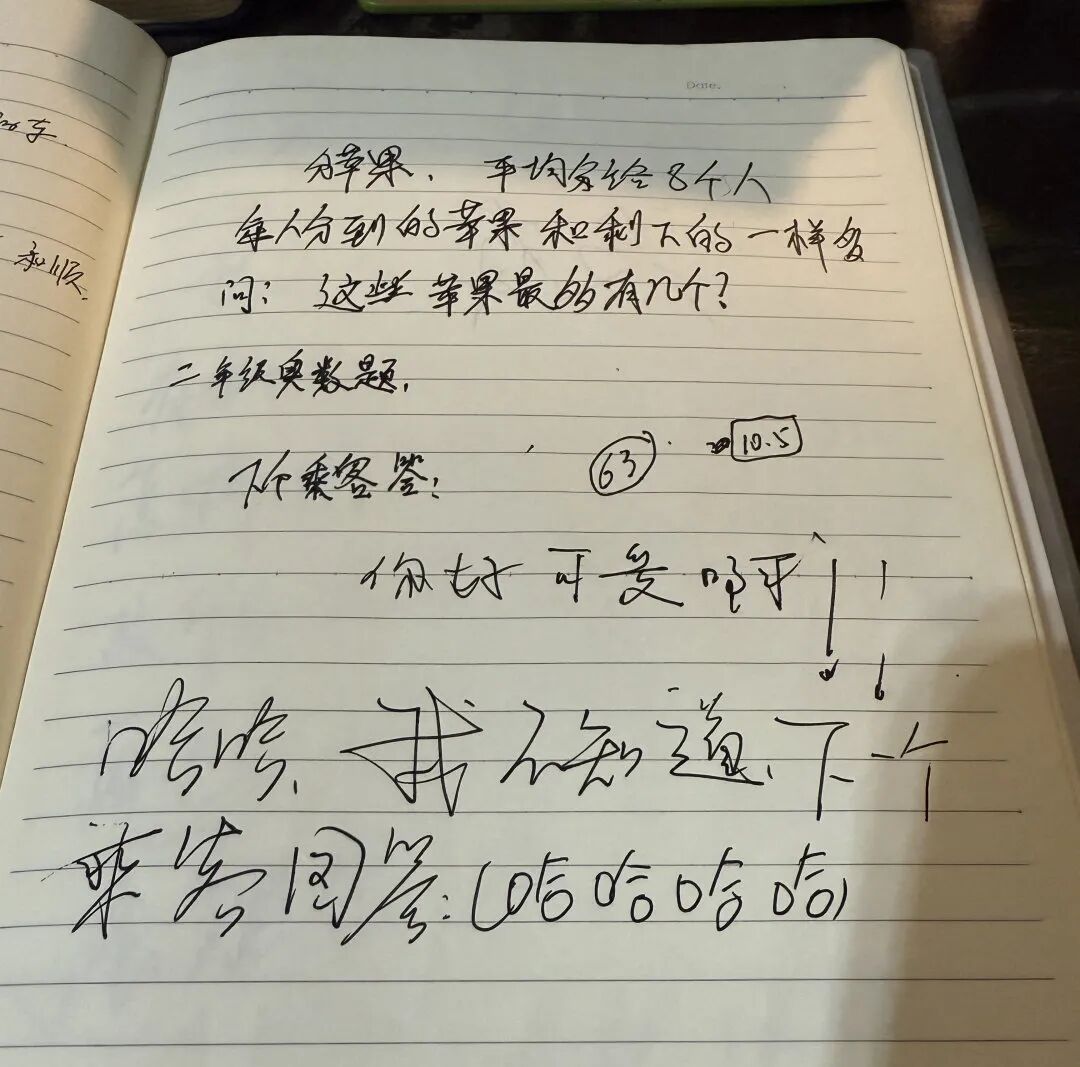 Date.
分苹果, 平均分给8个人
每人分到的苹果和剩下的一样多
问: 这些苹果最多有几个?
二年级奥数题.
下个乘客答: 63 10.5
你好可爱呀
哈哈, 我不知道, 下一个
乘客回答: (哈哈哈哈)
和顺.